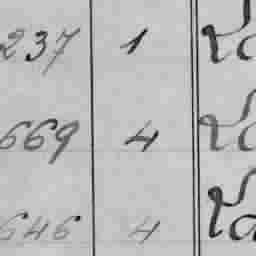 237 1
669 4
646 4